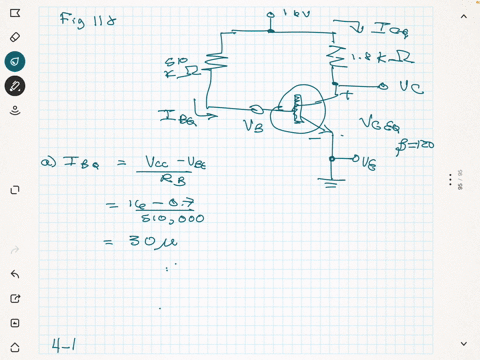 Fig 118
16V
ICQ
510
KΩ
1.8 KΩ
VC
+
IBQ
VB
VCEQ
β=120
-
VE
a) IBQ = VCC - VBE
RB
= 16 - 0.7
510,000
= 30 μ
4-1